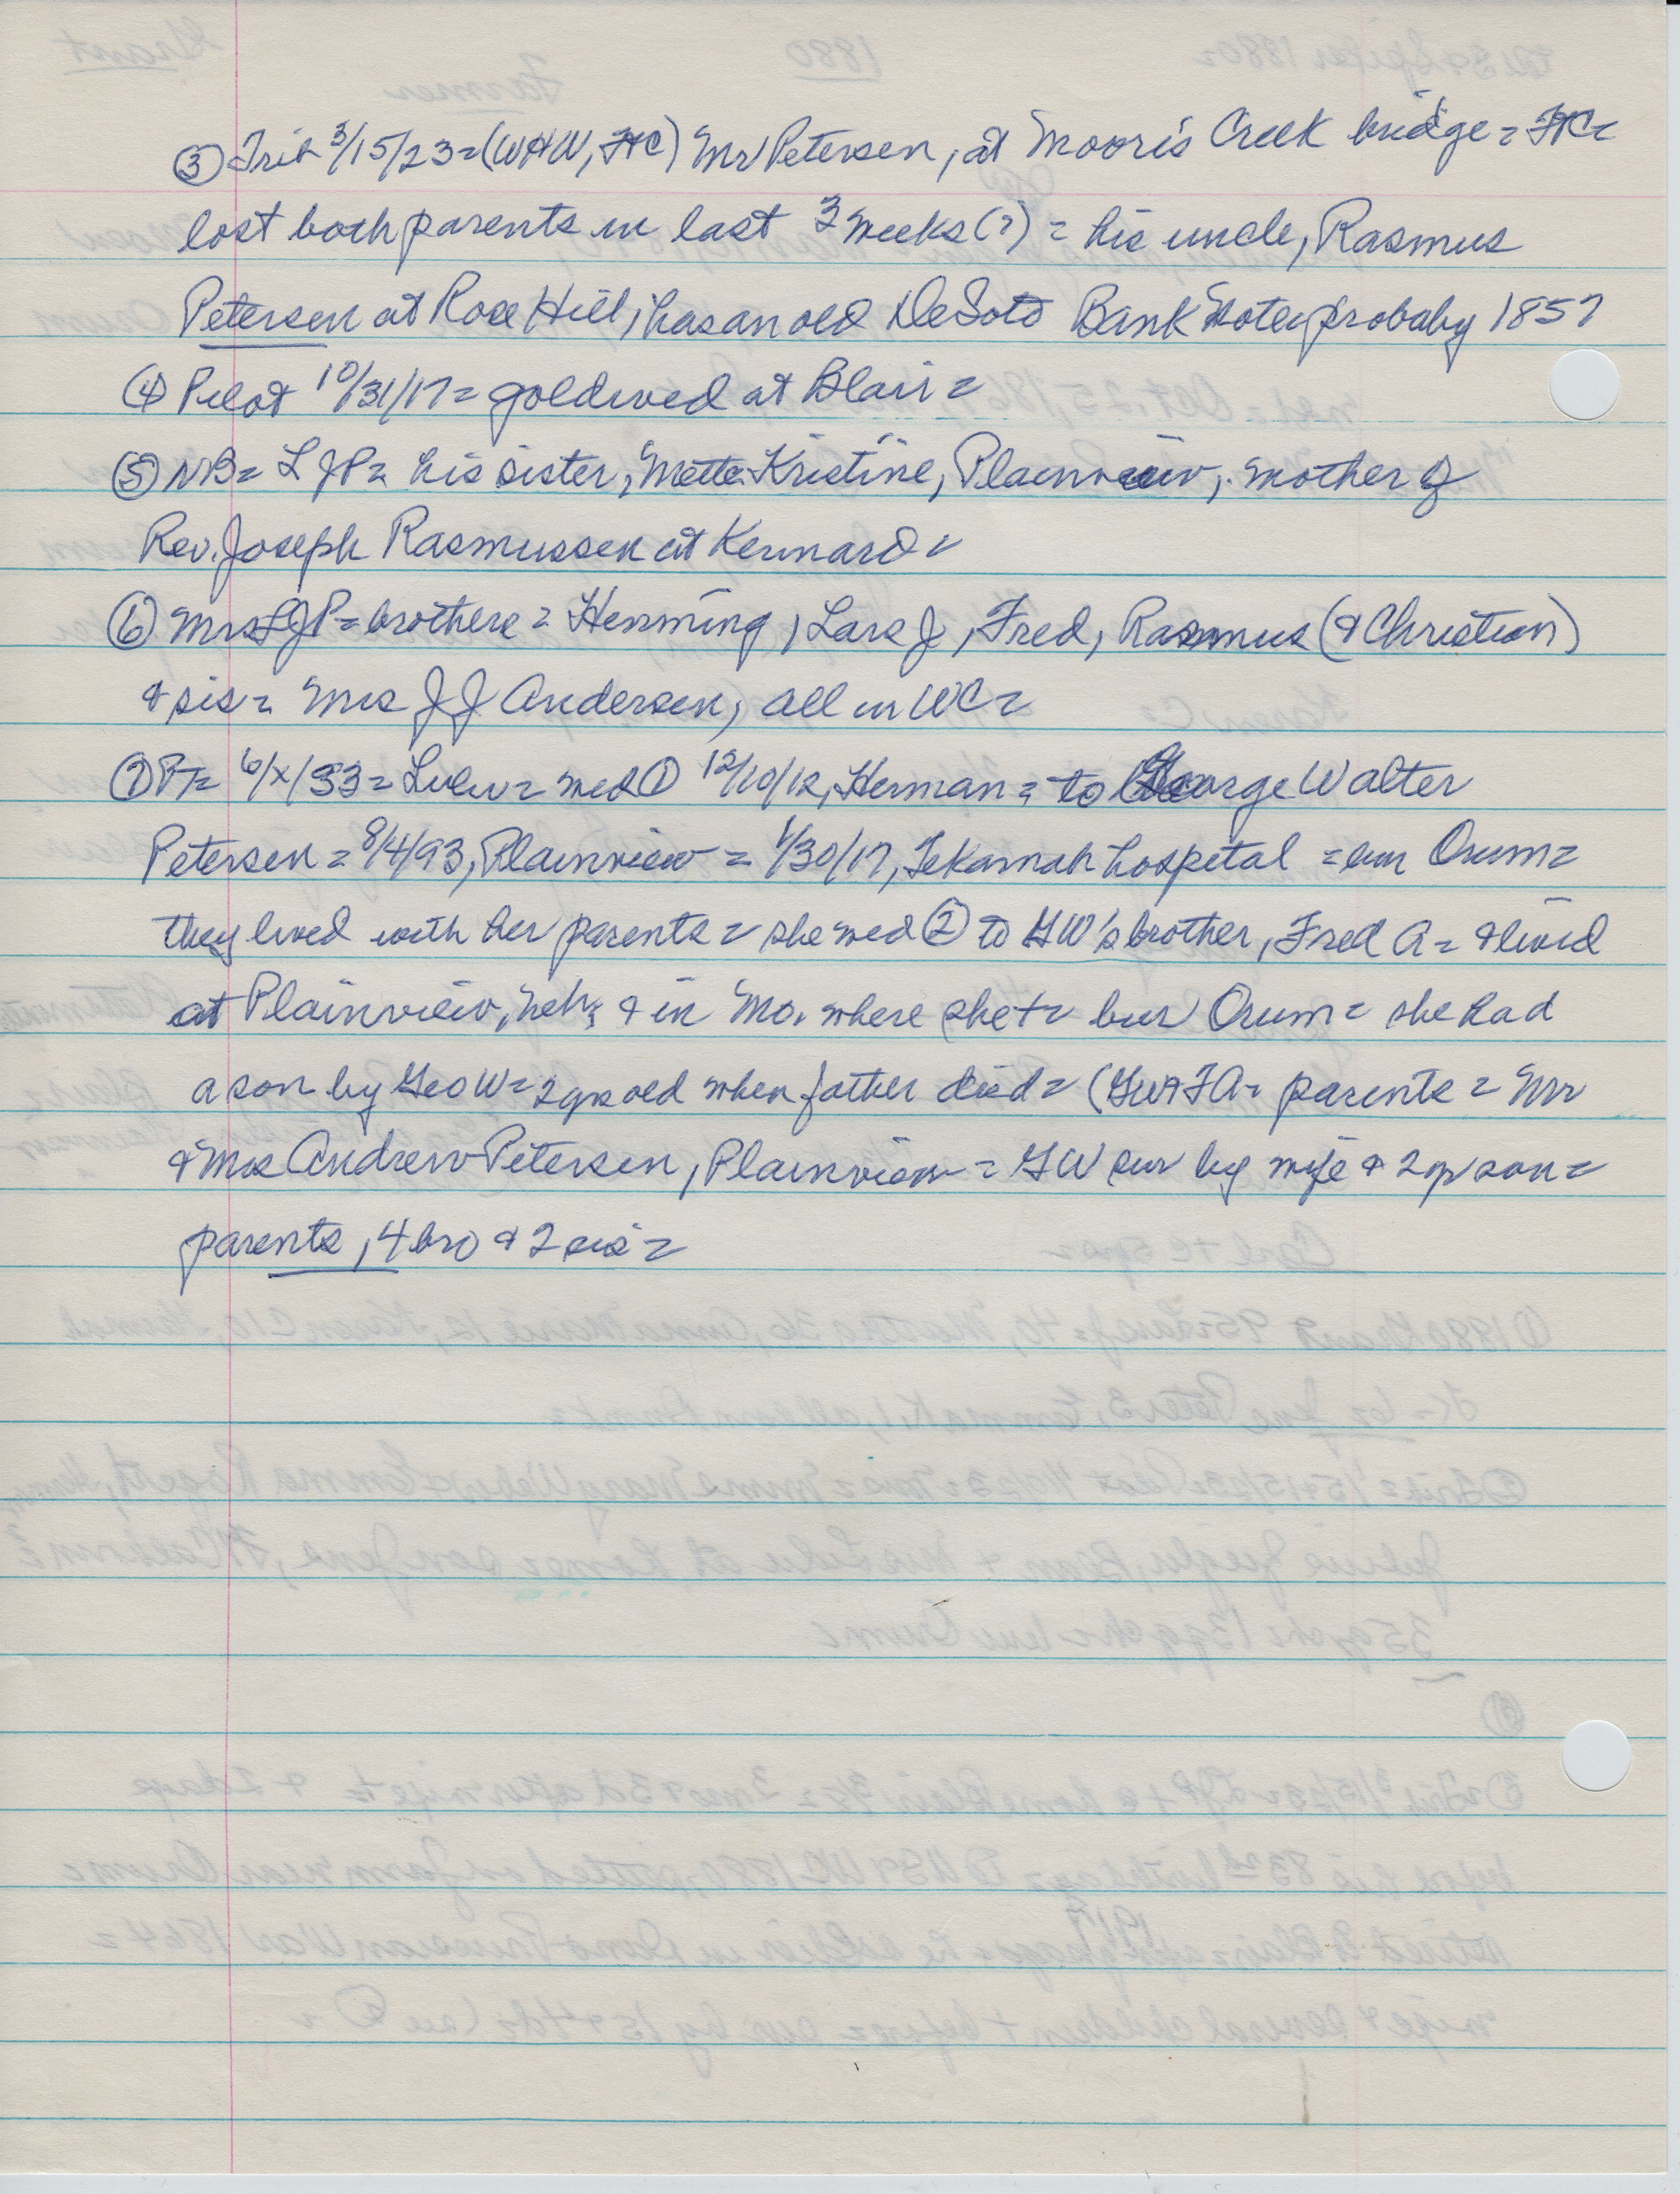 ③ Trib 3/15/23 = (WHW, FC) Mr Petersen, at Moores Creek bridge = FC =
lost both parents in last 3 weeks (?) = his uncle, Rasmus
Petersen at Rose Hill, has an old DeSoto Bank Note, probaby 1857
④ Pilot 10/31/17 = gold wed at Blair =
⑤ NB = LJP = his sister, Mette Kristine, Plainview, mother of
Rev. Joseph Rasmussen at Kennard =
⑥ Mrs LJP = brothers = Henning, Lars J, Fred, Rasmus (& Christian)
& sis = Mrs J J Andersen, all in WC =
⑦ PT = 6/x/33 = Lulu = wed ① 12/10/12, Herman = to George Walter
Petersen = 8/4/93, Plainview = 1/30/17, Tekamah hospital = bur Orum =
they lived with her parents = she wed ② to GW's brother, Fred A = & lived
at Plainview, Neb, & in Mo. where she + = bur Orum = she had
a son by Geo W = 2 yrs old when father died = (GW & FA = parents = Mr
& Mrs Andrew Petersen, Plainview = GW sur by wife & 2 yr son =
parents, 4 bro & 2 sis =